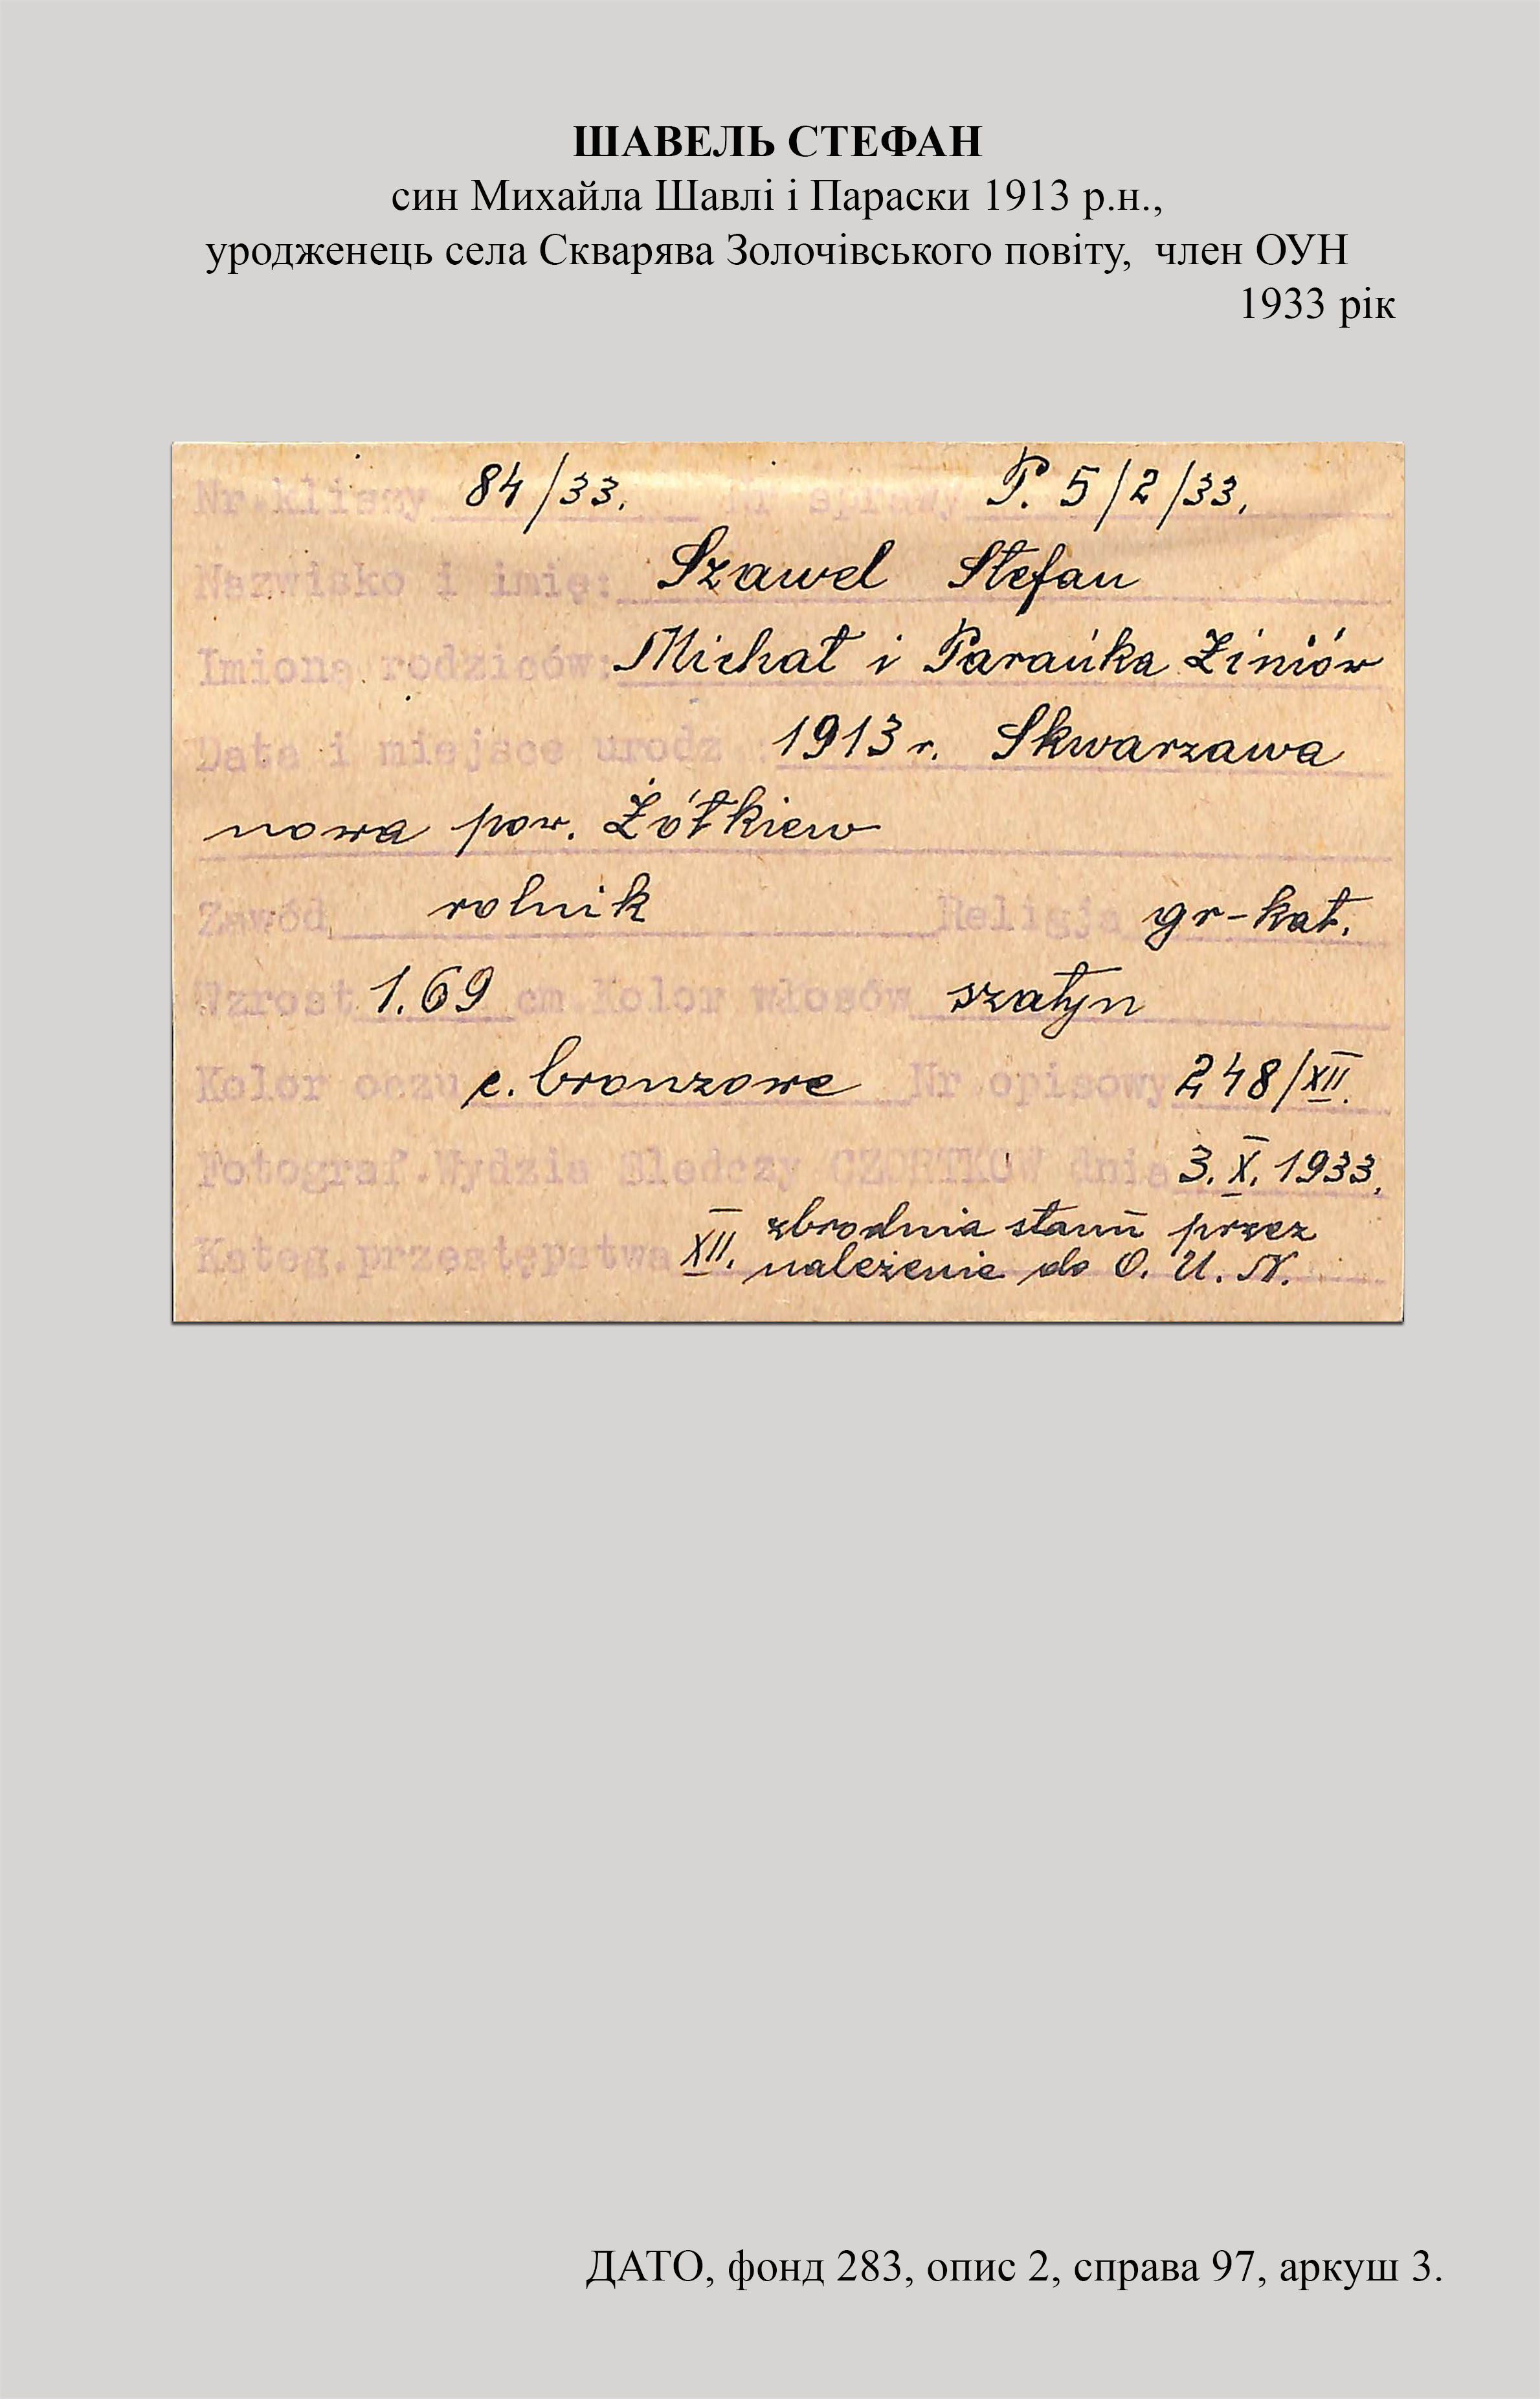 ШАВЕЛЬ СТЕФАН
син Михайла Шавлі і Параски 1913 р.н.,
уродженець села Скварява Золочівського повіту, член ОУН
1933 рік
Nr.kliszy 84/33. Nr sprawy P. 5/2/33.
Nazwisko i imię: Szawel Stefan
Imiona rodziców: Michał i Parańka Ziniów
Data i miejsce urodz.: 1913 r. Skwarzawa
nowa pow. Żółkiew
Zawód rolnik Religja gr-kat.
Wzrost 1.69 cm. Kolor włosów szatyn
Kolor oczu c. bronzowe Nr opisowy 248/XII.
Fotograf. Wydział Śledczy CZORTKÓW dnia 3. X. 1933.
Kateg. przestępstwa XII. zbrodnia stanu przez
należenie do O. U. N.
ДАТО, фонд 283, опис 2, справа 97, аркуш 3.